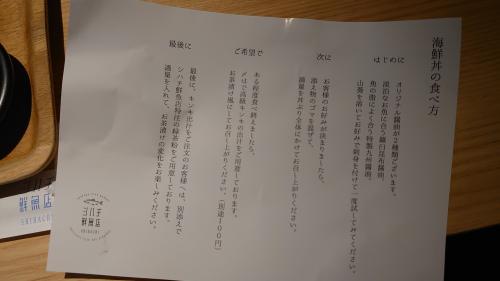 海鮮丼の食べ方
はじめに
オリジナル醤油が2種類ございます
淡泊なお魚に合う線白昆布醤油、
魚の脂によく合う特製九州醤油、
山葵を溶いてお好みで刺身を付けて一度試してみてください。
次に
お客様のお好みが決まりましたら、
添え物のゴマを混ぜて、
適量を丼ぶり全体にかけてお召し上がりください。
ご希望で
ある程度食べ終えましたら、
〆はで高級キンキの出汁をご用意しております。
お茶漬け風にしてお召し上がりください。(別途100円)
最後に
最後に、キンキ出汁をご注文のお客様へは、別添えで
シハチ鮮魚店特注の緑茶粉をご用意しております。
適量を入れて、お茶漬けの変化をお楽しみください。
シハチ
鮮魚店
SHIHACHI
鮮魚店